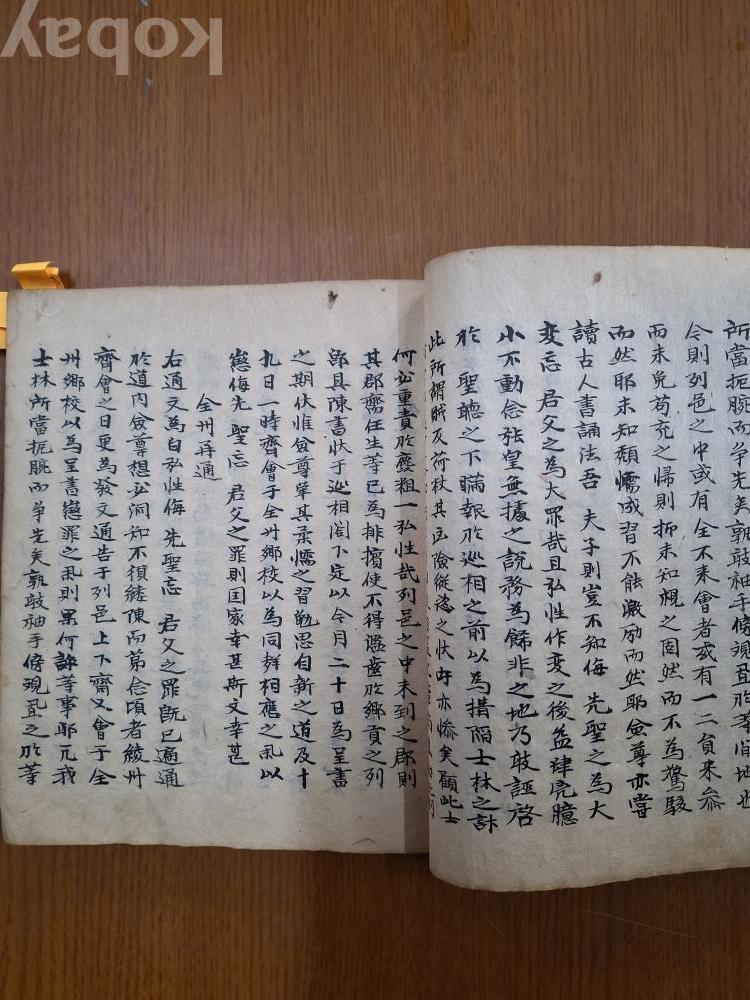 所當扼腕而爭先矣孰敢袖手傍視
令則列邑之中或有全不來會者或有一二負來參
而未免苟充之帰則抑未知規之固然而不為驚駭
而然耶未知頹懦成習不能激励而然耶僉尊亦嘗
讀古人書誦法吾 夫子則豈不知侮 先聖之為大
変忘 君父之為大罪哉且弘性作変之後益肆兇臆
小不動念張皇無據之說務為餙非之地乃敢誣啓
於 聖聴之下瞞報於巡相之前以為搆陷士林之計
此所謂賊反荷杖其 險縱恣之状吁亦惨矣顧此士
何必重責於麤粗一弘性哉列邑之中未到之郡則
其郡齋任生等已為排擯使不得濫齒於鄉貢之列
郎具陳書状于巡相閤下定以今月二十日為呈書
之期伏惟僉尊革其柔懦之習勉思自新之道及十
九日一時齊會于全州鄉校以為同群相應之 以
懲侮先 聖忘 君父之罪則囯家幸甚斯文幸甚
全州再通
右通文為白弘性侮 先聖忘 君父之罪旣已遍通
於道内僉尊想必洞知不須縷陳而第念頃者綾州
齊會之日更為發文通告于列邑上下齋又會于全
州鄉校以為呈書懲罪之 則果何許等事耶凡我
士林所當扼腕而爭先矣孰敢袖手傍視 之於等
kobay